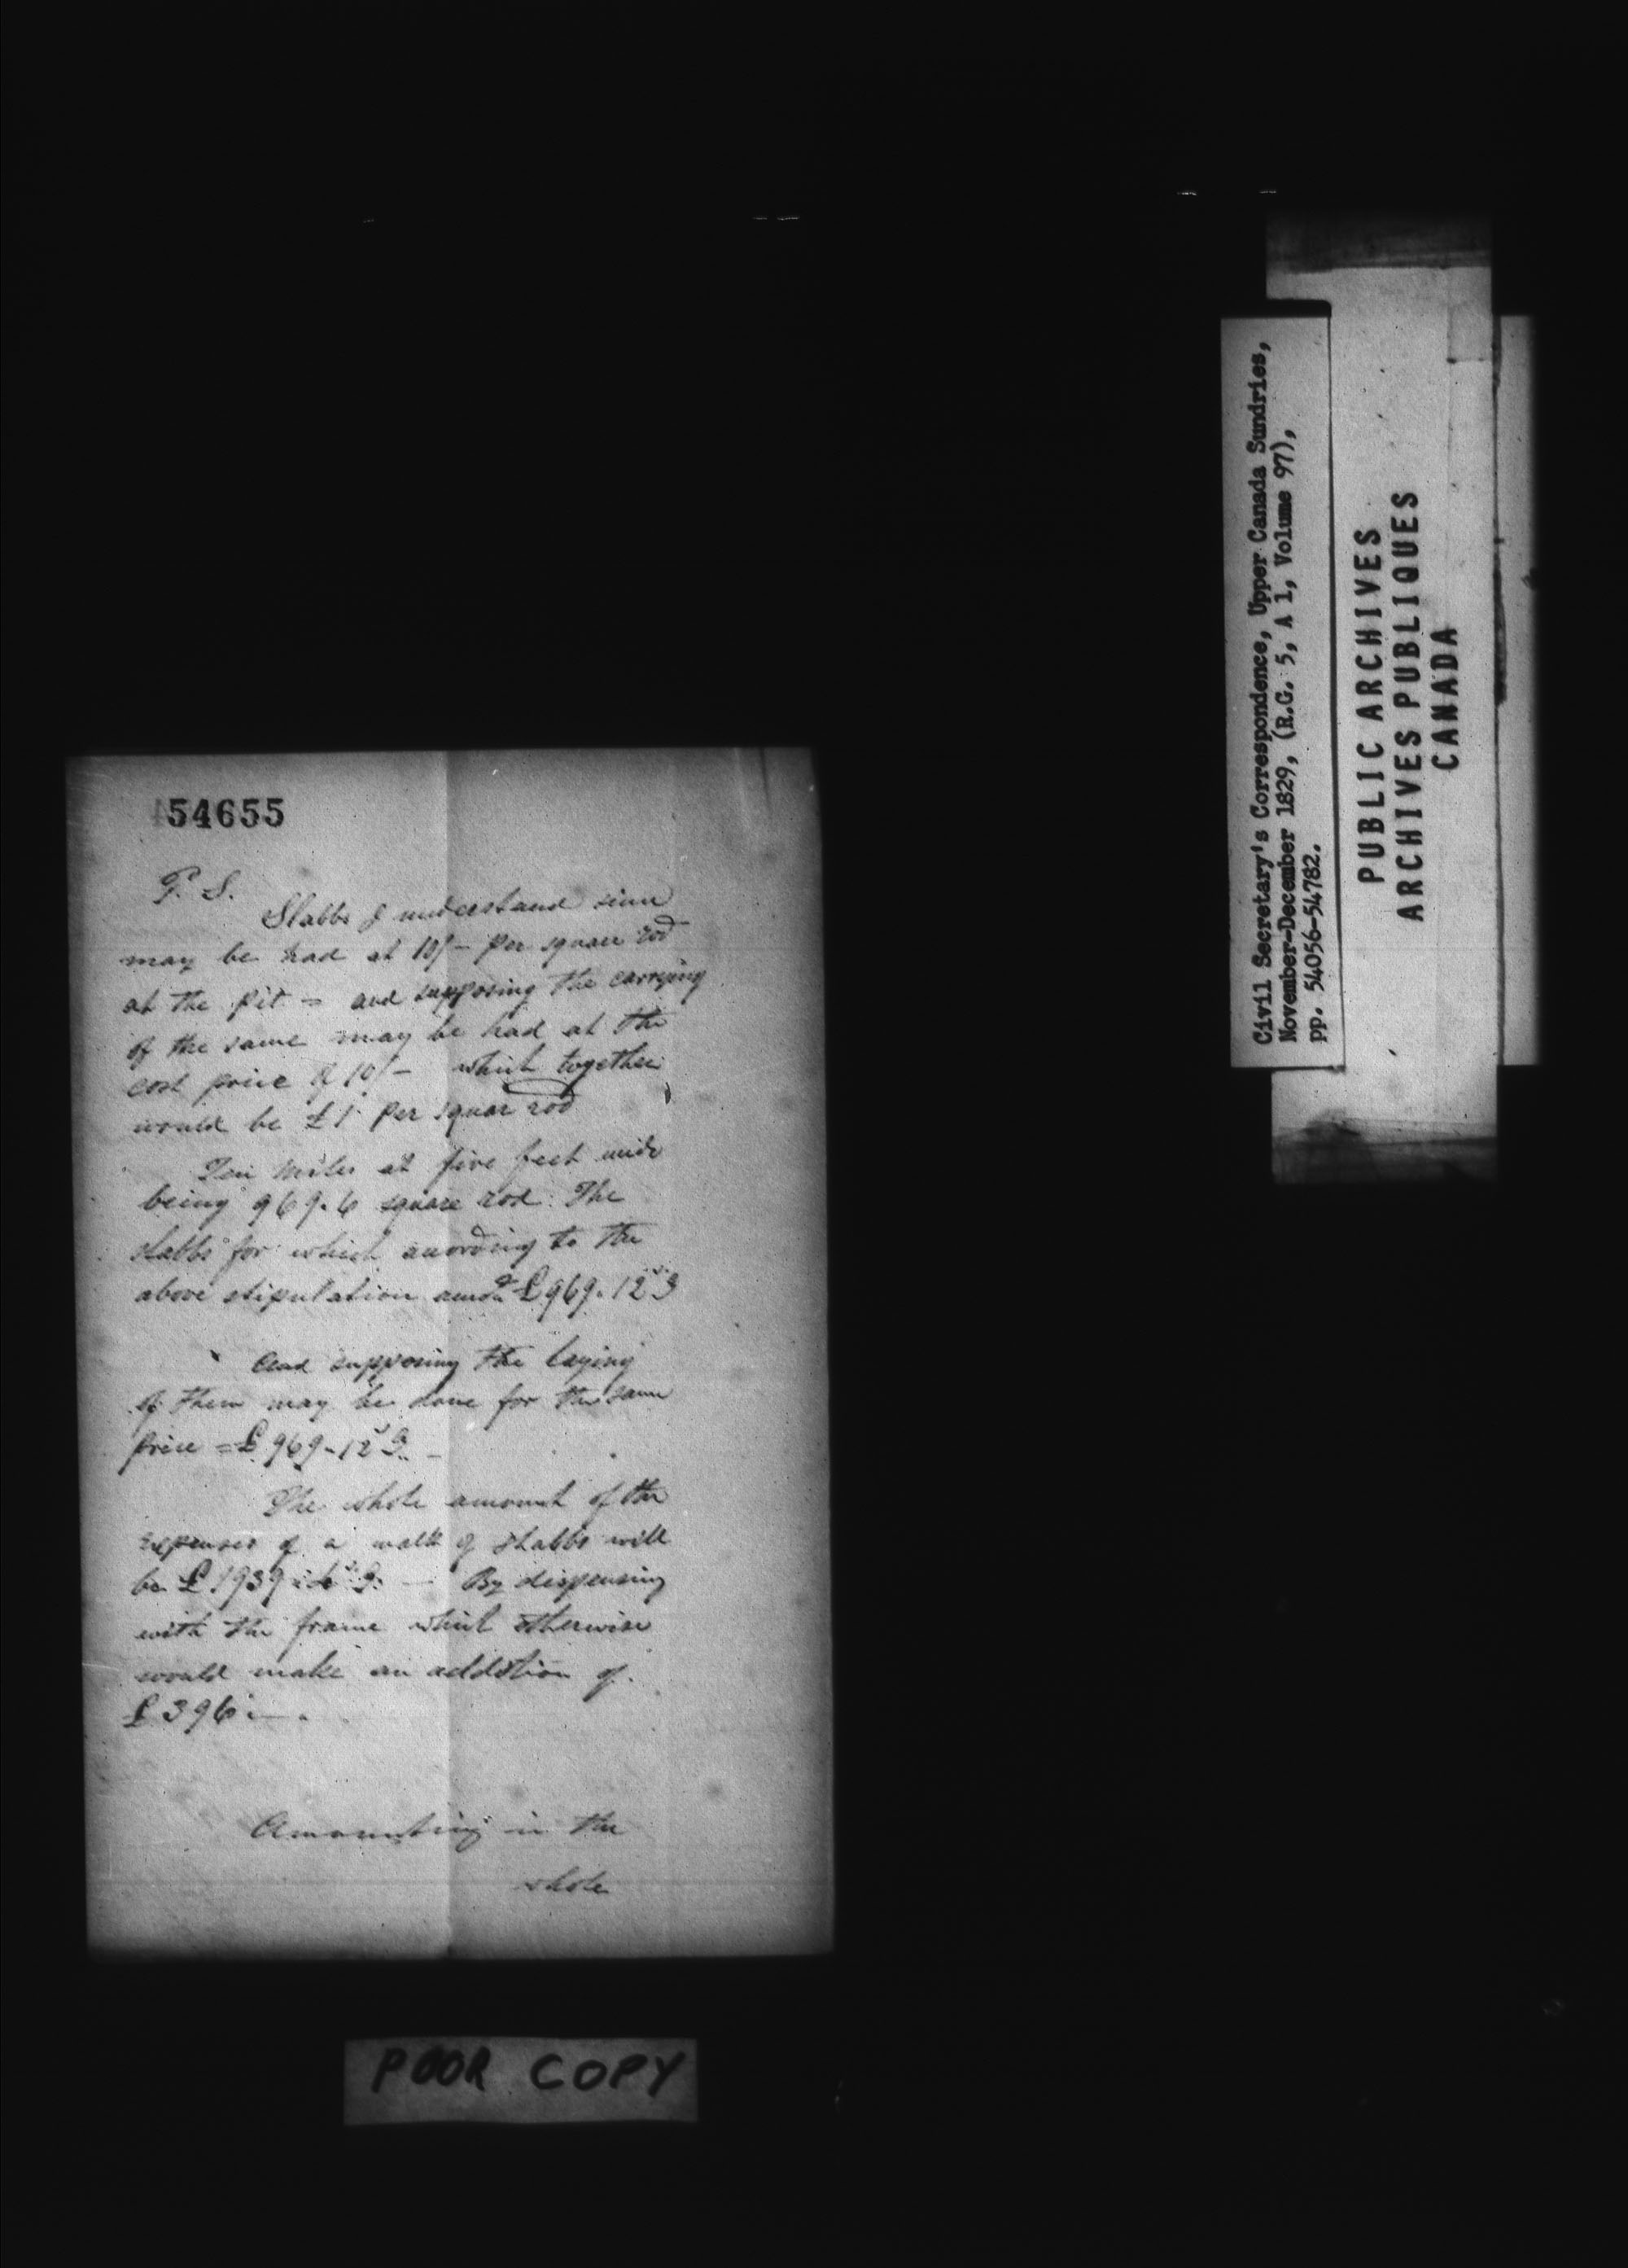 54655
P. S.
Slabbs I understand sinu
may be had at 10/- per square rod
at the pit = and supposing the carrying
of the same may be had at the
cost price of 10/- which together
would be £1 per squar rod
miles at five feet wide
being 969.6 square rod. The
slabbs for which according to the
above stipulation £969.12
And supposing the laying
of them may be done for the same
price = £969-12
The whole amount of the
expenses of a walk of slabbs will
be £1939 By dispensing
with the frame which otherwise
would make an addition of
£396.—.
Amounting in the
whole
POOR COPY
Civil Secretary's Correspondence, Upper Canada Sundries,
November-December 1829, (R.G. 5, A 1, Volume 97),
pp. 54056-54782.
PUBLIC ARCHIVES
ARCHIVES PUBLIQUES
CANADA